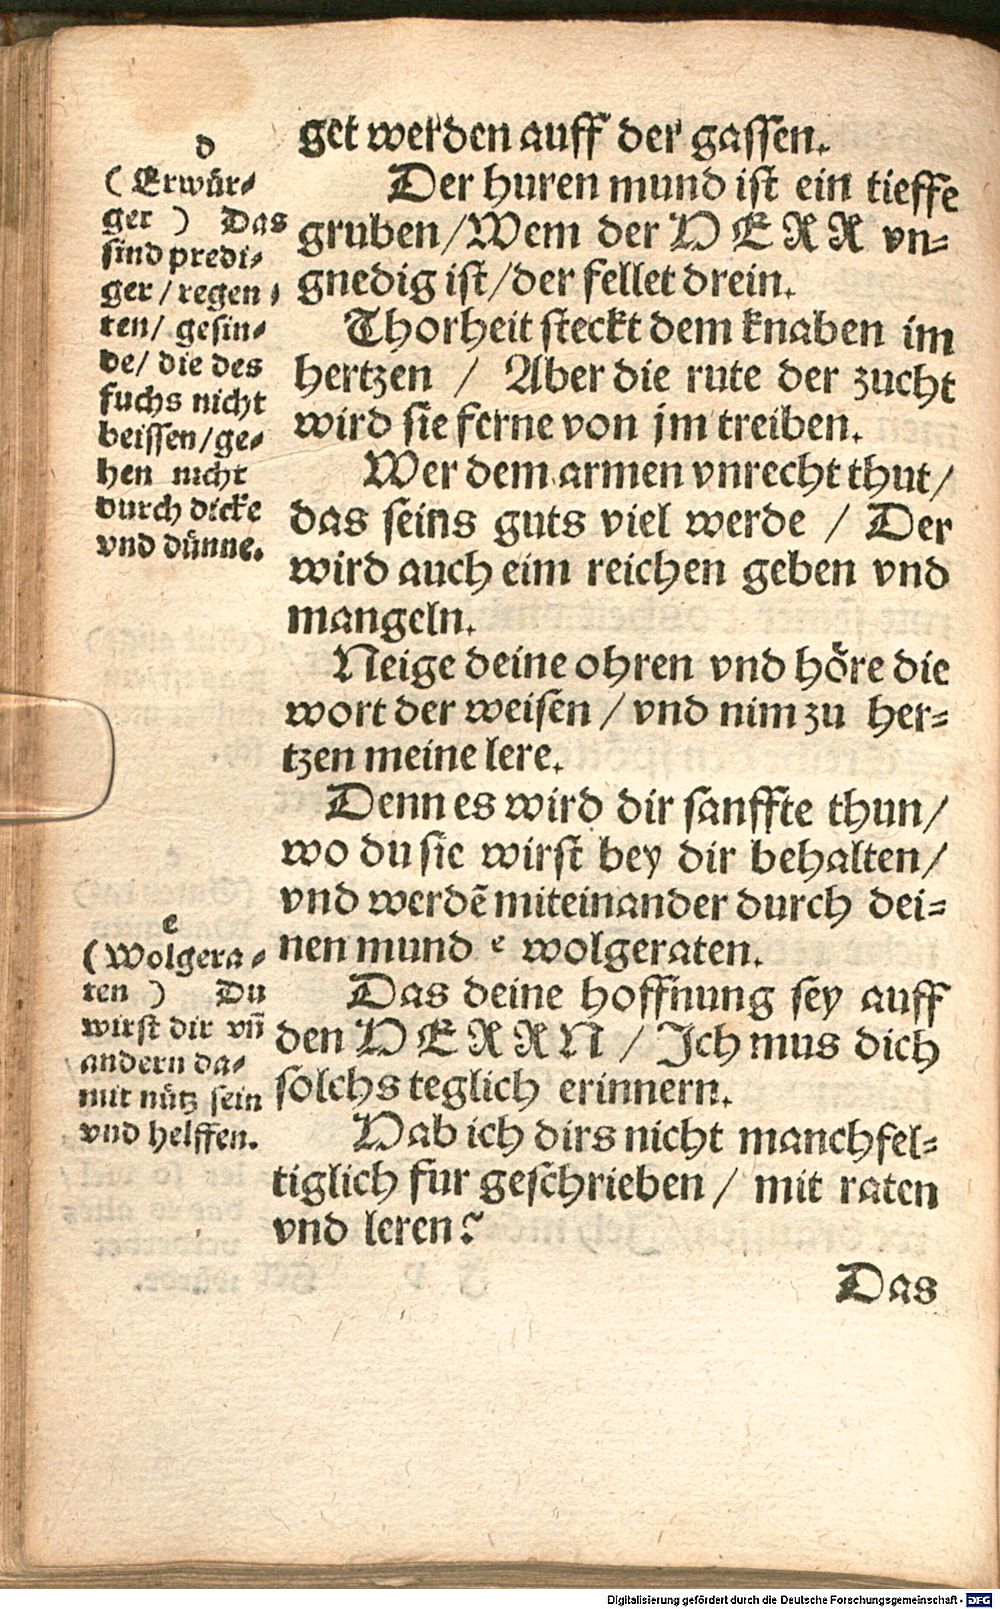 get werden auff der gassen.
Der huren mund ist ein tieffe
gruben/Wem der HERR vn-
gnedig ist/der fellet drein.
Thorheit steckt dem knaben im
hertzen / Aber die rute der zucht
wird sie ferne von jm treiben.
Wer dem armen vnrecht thut/
das seins guts viel werde / Der
wird auch eim reichen geben vnd
mangeln.
Neige deine ohren vnd höre die
wort der weisen / vnd nim zu her-
tzen meine lere.
Denn es wird dir sanffte thun/
wo du sie wirst bey dir behalten/
vnd werdẽ miteinander durch dei-
nen mund e wolgeraten.
Das deine hoffnung sey auff
den HERRN / Ich mus dich
solchs teglich erinnern.
Hab ich dirs nicht manchfel-
tiglich fur geschrieben / mit raten
vnd leren?
Das
d
(Erwür-
ger) Das
sind predi-
ger/regen-
ten/ gesin-
de/ die des
fuchs nicht
beissen/ge-
hen nicht
durch dicke
vnd dünne.
e
(Wolgera-
ten) Du
wirst dir vñ
andern da-
mit nütz sein
vnd helffen.
Digitalisierung gefördert durch die Deutsche Forschungsgemeinschaft - DFG